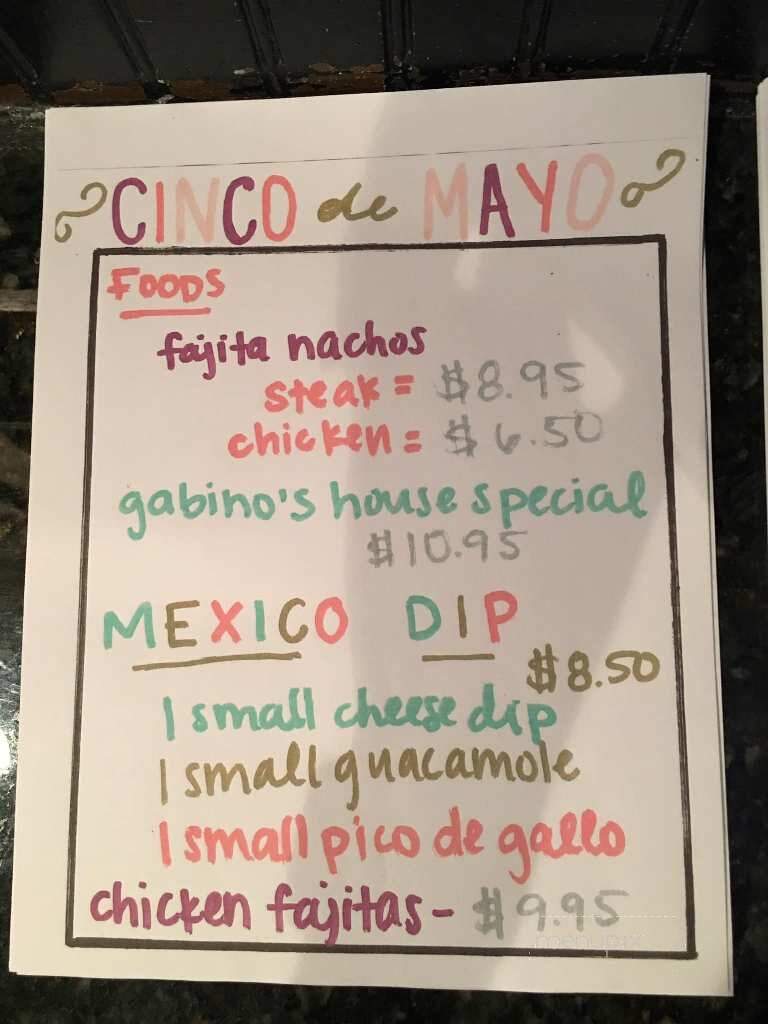 CINCO de MAYO
FOODS
fajita nachos
steak = $8.95
chicken = $6.50
gabino's house special
$10.95
MEXICO DIP
$8.50
1 small cheese dip
1 small guacamole
1 small pico de gallo
chicken fajitas - $9.95
menupix